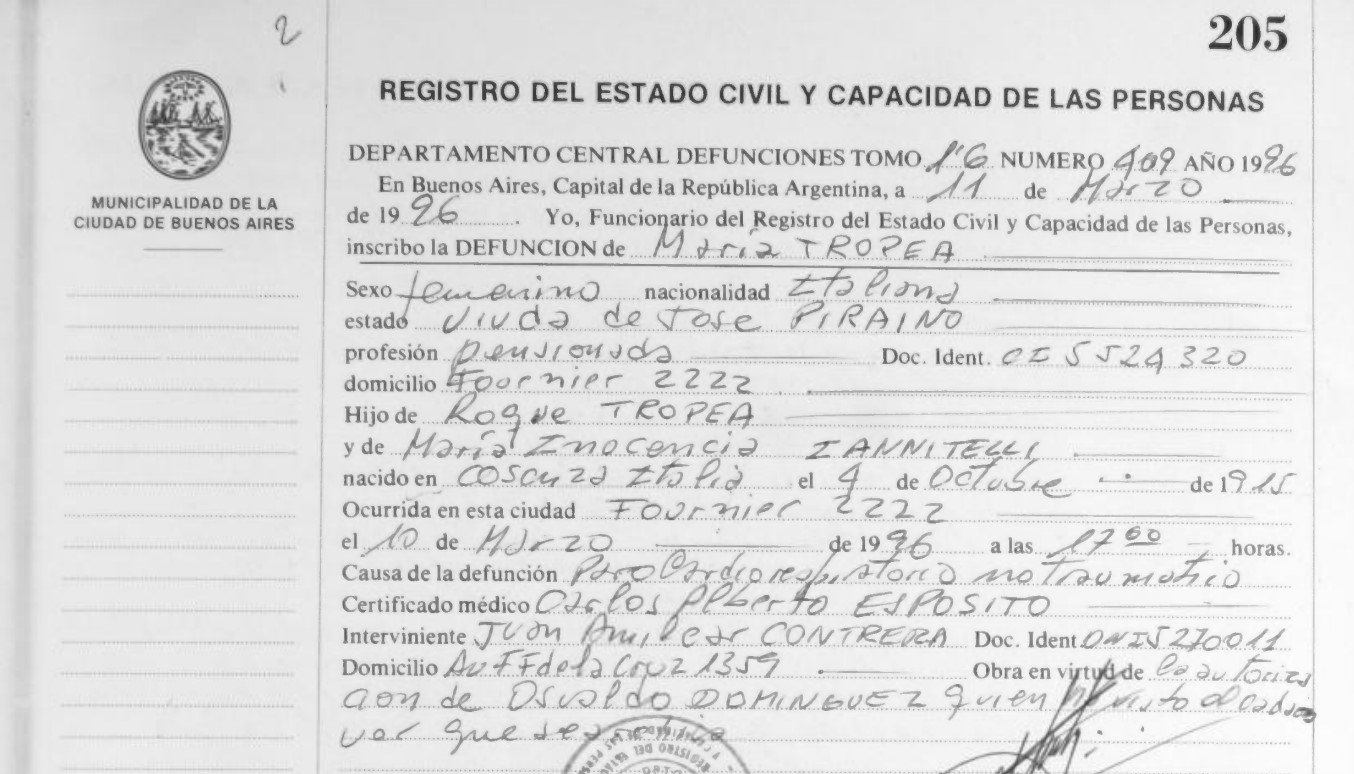 2
205
MUNICIPALIDAD DE LA
CIUDAD DE BUENOS AIRES
REGISTRO DEL ESTADO CIVIL Y CAPACIDAD DE LAS PERSONAS
DEPARTAMENTO CENTRAL DEFUNCIONES TOMO 1°G NUMERO 409 AÑO 1996
En Buenos Aires, Capital de la República Argentina, a 11 de Marzo
de 1996. Yo, Funcionario del Registro del Estado Civil y Capacidad de las Personas,
inscribo la DEFUNCION de María TROPEA
Sexo femenino nacionalidad Italiana
estado viuda de Jose PIRAINO
profesión pensionada Doc. Ident. CI 5524320
domicilio Fournier 2222
Hijo de Roque TROPEA
y de María Inocencia IANNITELLI
nacido en Cosenza Italia el 4 de Octubre de 1915
Ocurrida en esta ciudad Fournier 2222
el 10 de Marzo de 1996 a las 17 00 horas.
Causa de la defunción Paro Cardiorespiratorio no traumatico
Certificado médico Carlos Alberto ESPOSITO
Interviniente Juan Amilcar CONTRERA Doc. Ident DNI 5270011
Domicilio Av FF de la Cruz 1359 Obra en virtud de la autoriza
cion de Osvaldo DOMINGUEZ quien ha visto el cada
ver que se